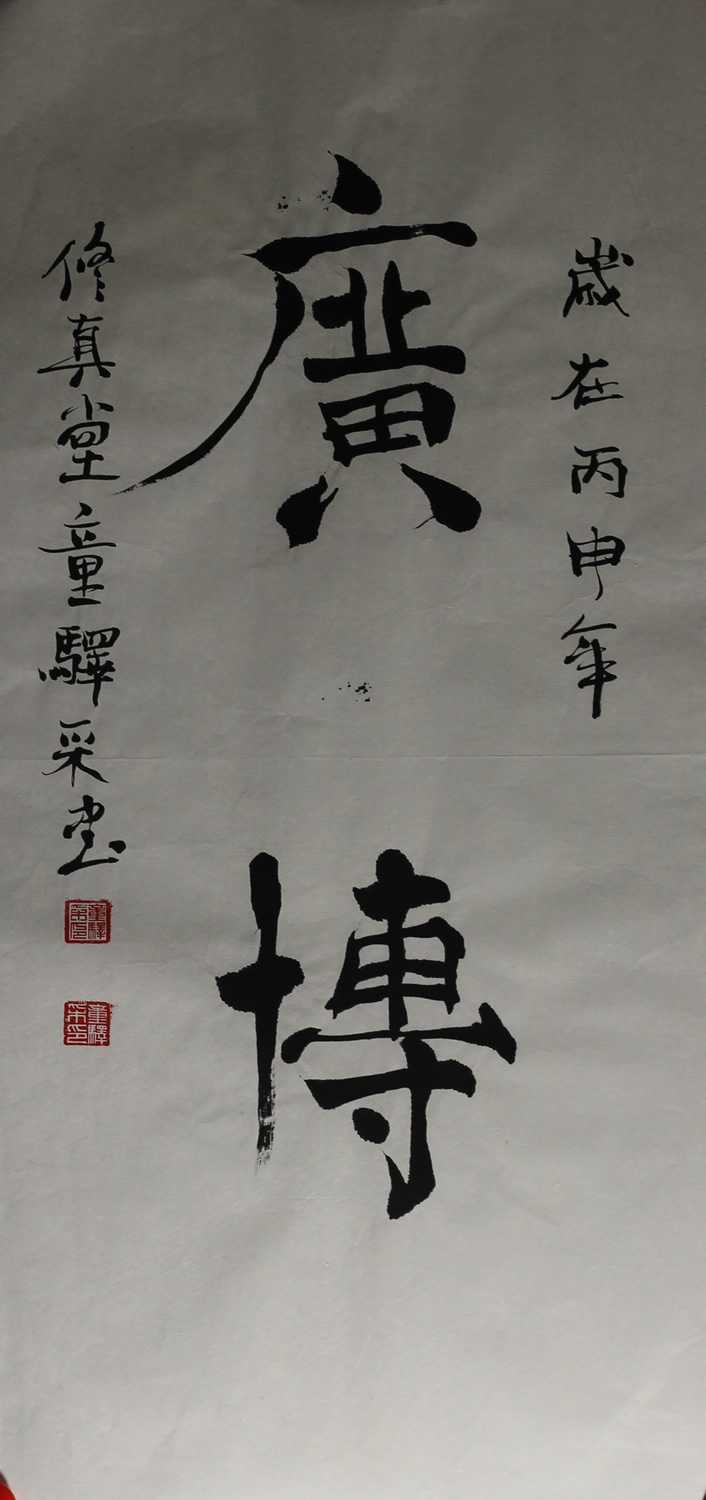 歲在丙申年
廣博
修真堂童驛采書